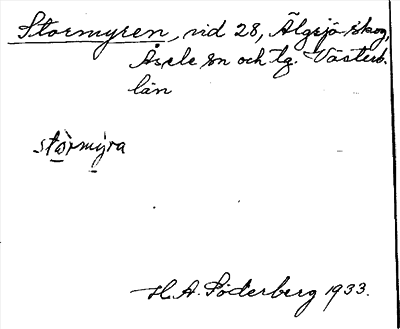 Stormyren, vid 28, Älgsjö skog,
Åsele sn och tg. Västerb.
län
stòrmýra
H.A. Söderberg 1933.